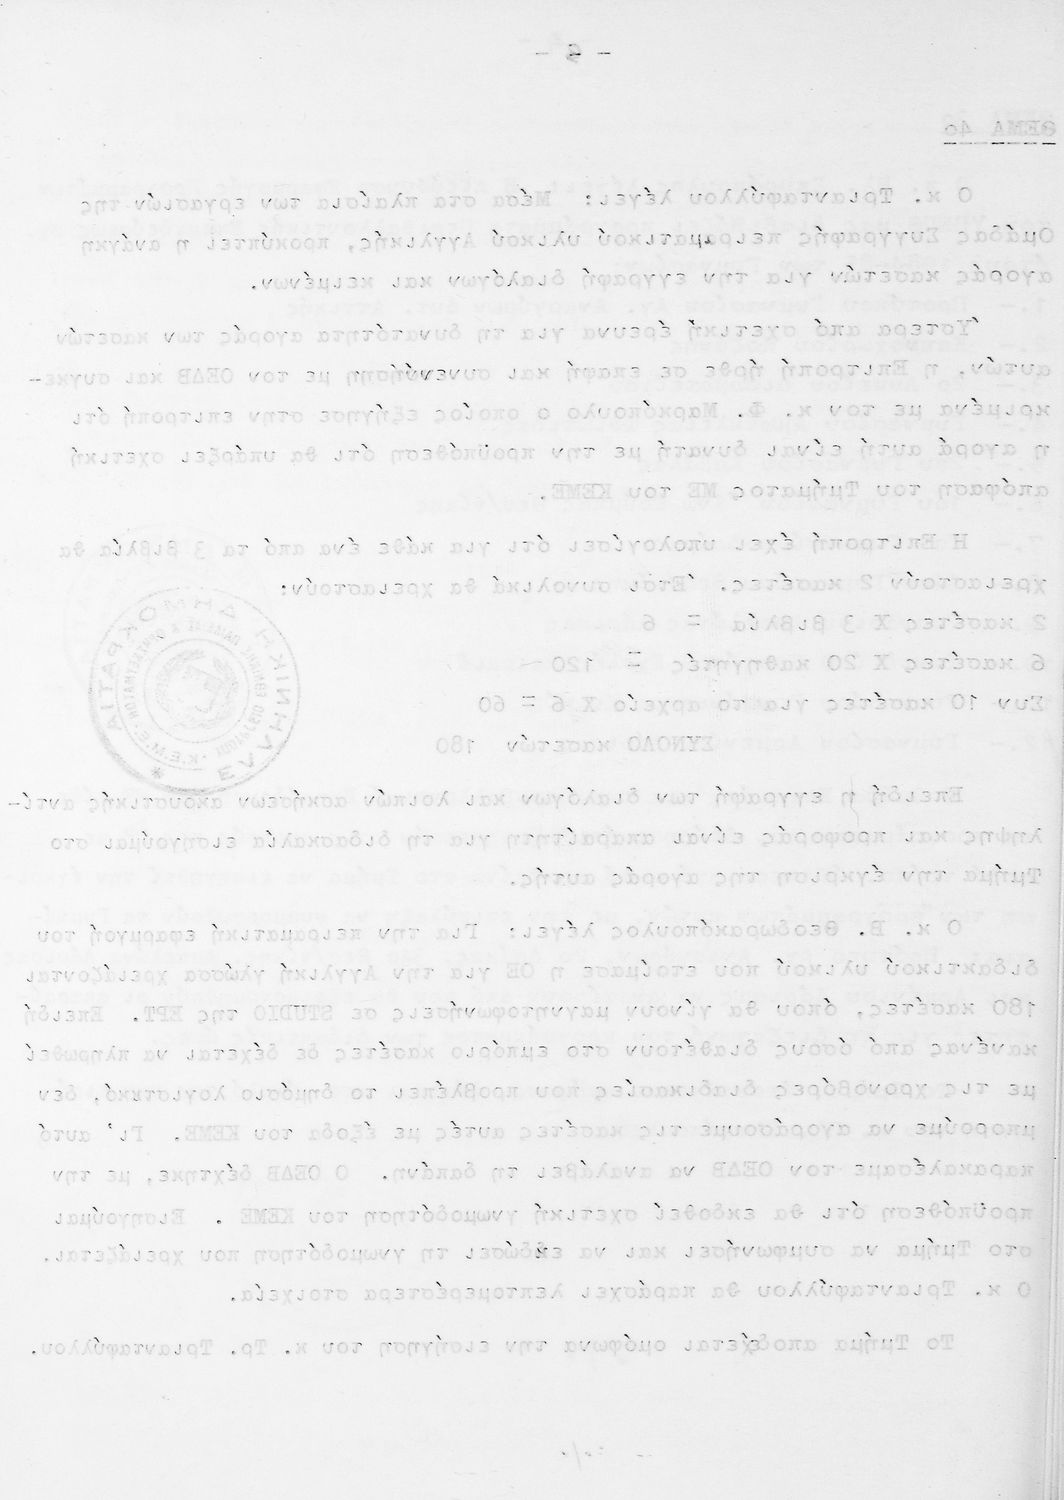 ΘΕΜΑ 4ο
Ο κ. Τριανταφύλλου λέγει: Μέσα στα πλαίσια των εργασιών της
Ομάδας Συγγραφής πειραματικού υλικού Αγγλικής, προκύπτει η ανάγκη
αγοράς κασετών για την εγγραφή διαλόγων και κειμένων.
Ύστερα από σχετική έρευνα για τη δυνατότητα αγοράς των κασετών
αυτών, η Επιτροπή ήρθε σε επαφή και συνενήσηση με τον ΟΕΔΒ και συγκε-
κριμένα με τον κ. Φ. Μαρκόπουλο ο οποίος εξήγησε στην επιτροπή ότι
η αγορά αυτή είναι δυνατή με την προϋπόθεση ότι θα υπάρξει σχετική
απόφαση του Τμήματος ΜΕ του ΚΕΜΕ.
Η Επιτροπή έχει υπολογίσει ότι για κάθε ένα από τα 3 βιβλία θα
χρειαστούν 2 κασέτες. Έτσι συνολικά θα χρειαστούν:
2 κασέτες Χ 3 βιβλία = 6
6 κασέτες Χ 20 καθηγητές = 120
Συν 10 κασέτες για το αρχείο Χ 6 = 60
ΣΥΝΟΛΟ κασετών 180
ΕΛΛΗΝΙΚΗ ΔΗΜΟΚΡΑΤΙΑ
Κ.Ε.Μ.Ε.
Επειδή η εγγραφή των διαλόγων και λοιπών ασκήσεων ακουστικής αντί-
ληψης και προφοράς είναι απαραίτητη για τη διδασκαλία εισηγούμαι στο
Τμήμα την έγκριση της αγοράς αυτής.
Ο κ. Β. Θεοδωρακόπουλος λέγει: Για την πειραματική εφαρμογή του
διδακτικού υλικού που ετοίμασε η ΟΕ για την Αγγλική γλώσσα χρειάζονται
180 κασέτες, όπου θα γίνουν μαγνητοφωνήσεις σε STUDIO της ΕΡΤ. Επειδή
κανένας από όσους διαθέτουν στο εμπόριο κασέτες δε δέχεται να πληρωθεί
με τις χρονοβόρες διαδικασίες που προβλέπει το δημόσιο λογιστικό, δεν
μπορούμε να αγοράσουμε τις κασέτες αυτές με έξοδα του ΚΕΜΕ. Γι' αυτό
παρακαλέσαμε τον ΟΕΔΒ να αναλάβει τη δαπάνη. Ο ΟΕΔΒ δέχτηκε, με την
προϋπόθεση ότι θα εκδοθεί σχετική γνωμοδότηση του ΚΕΜΕ . Εισηγούμαι
στο Τμήμα να συμφωνήσει και να εκδώσει τη γνωμοδότηση που χρειάζεται.
Ο κ. Τριανταφύλλου θα παράσχει λεπτομερέστερα στοιχεία.
Το Τμήμα αποδέχεται ομόφωνα την εισήγηση του κ. Τρ. Τριανταφύλλου.